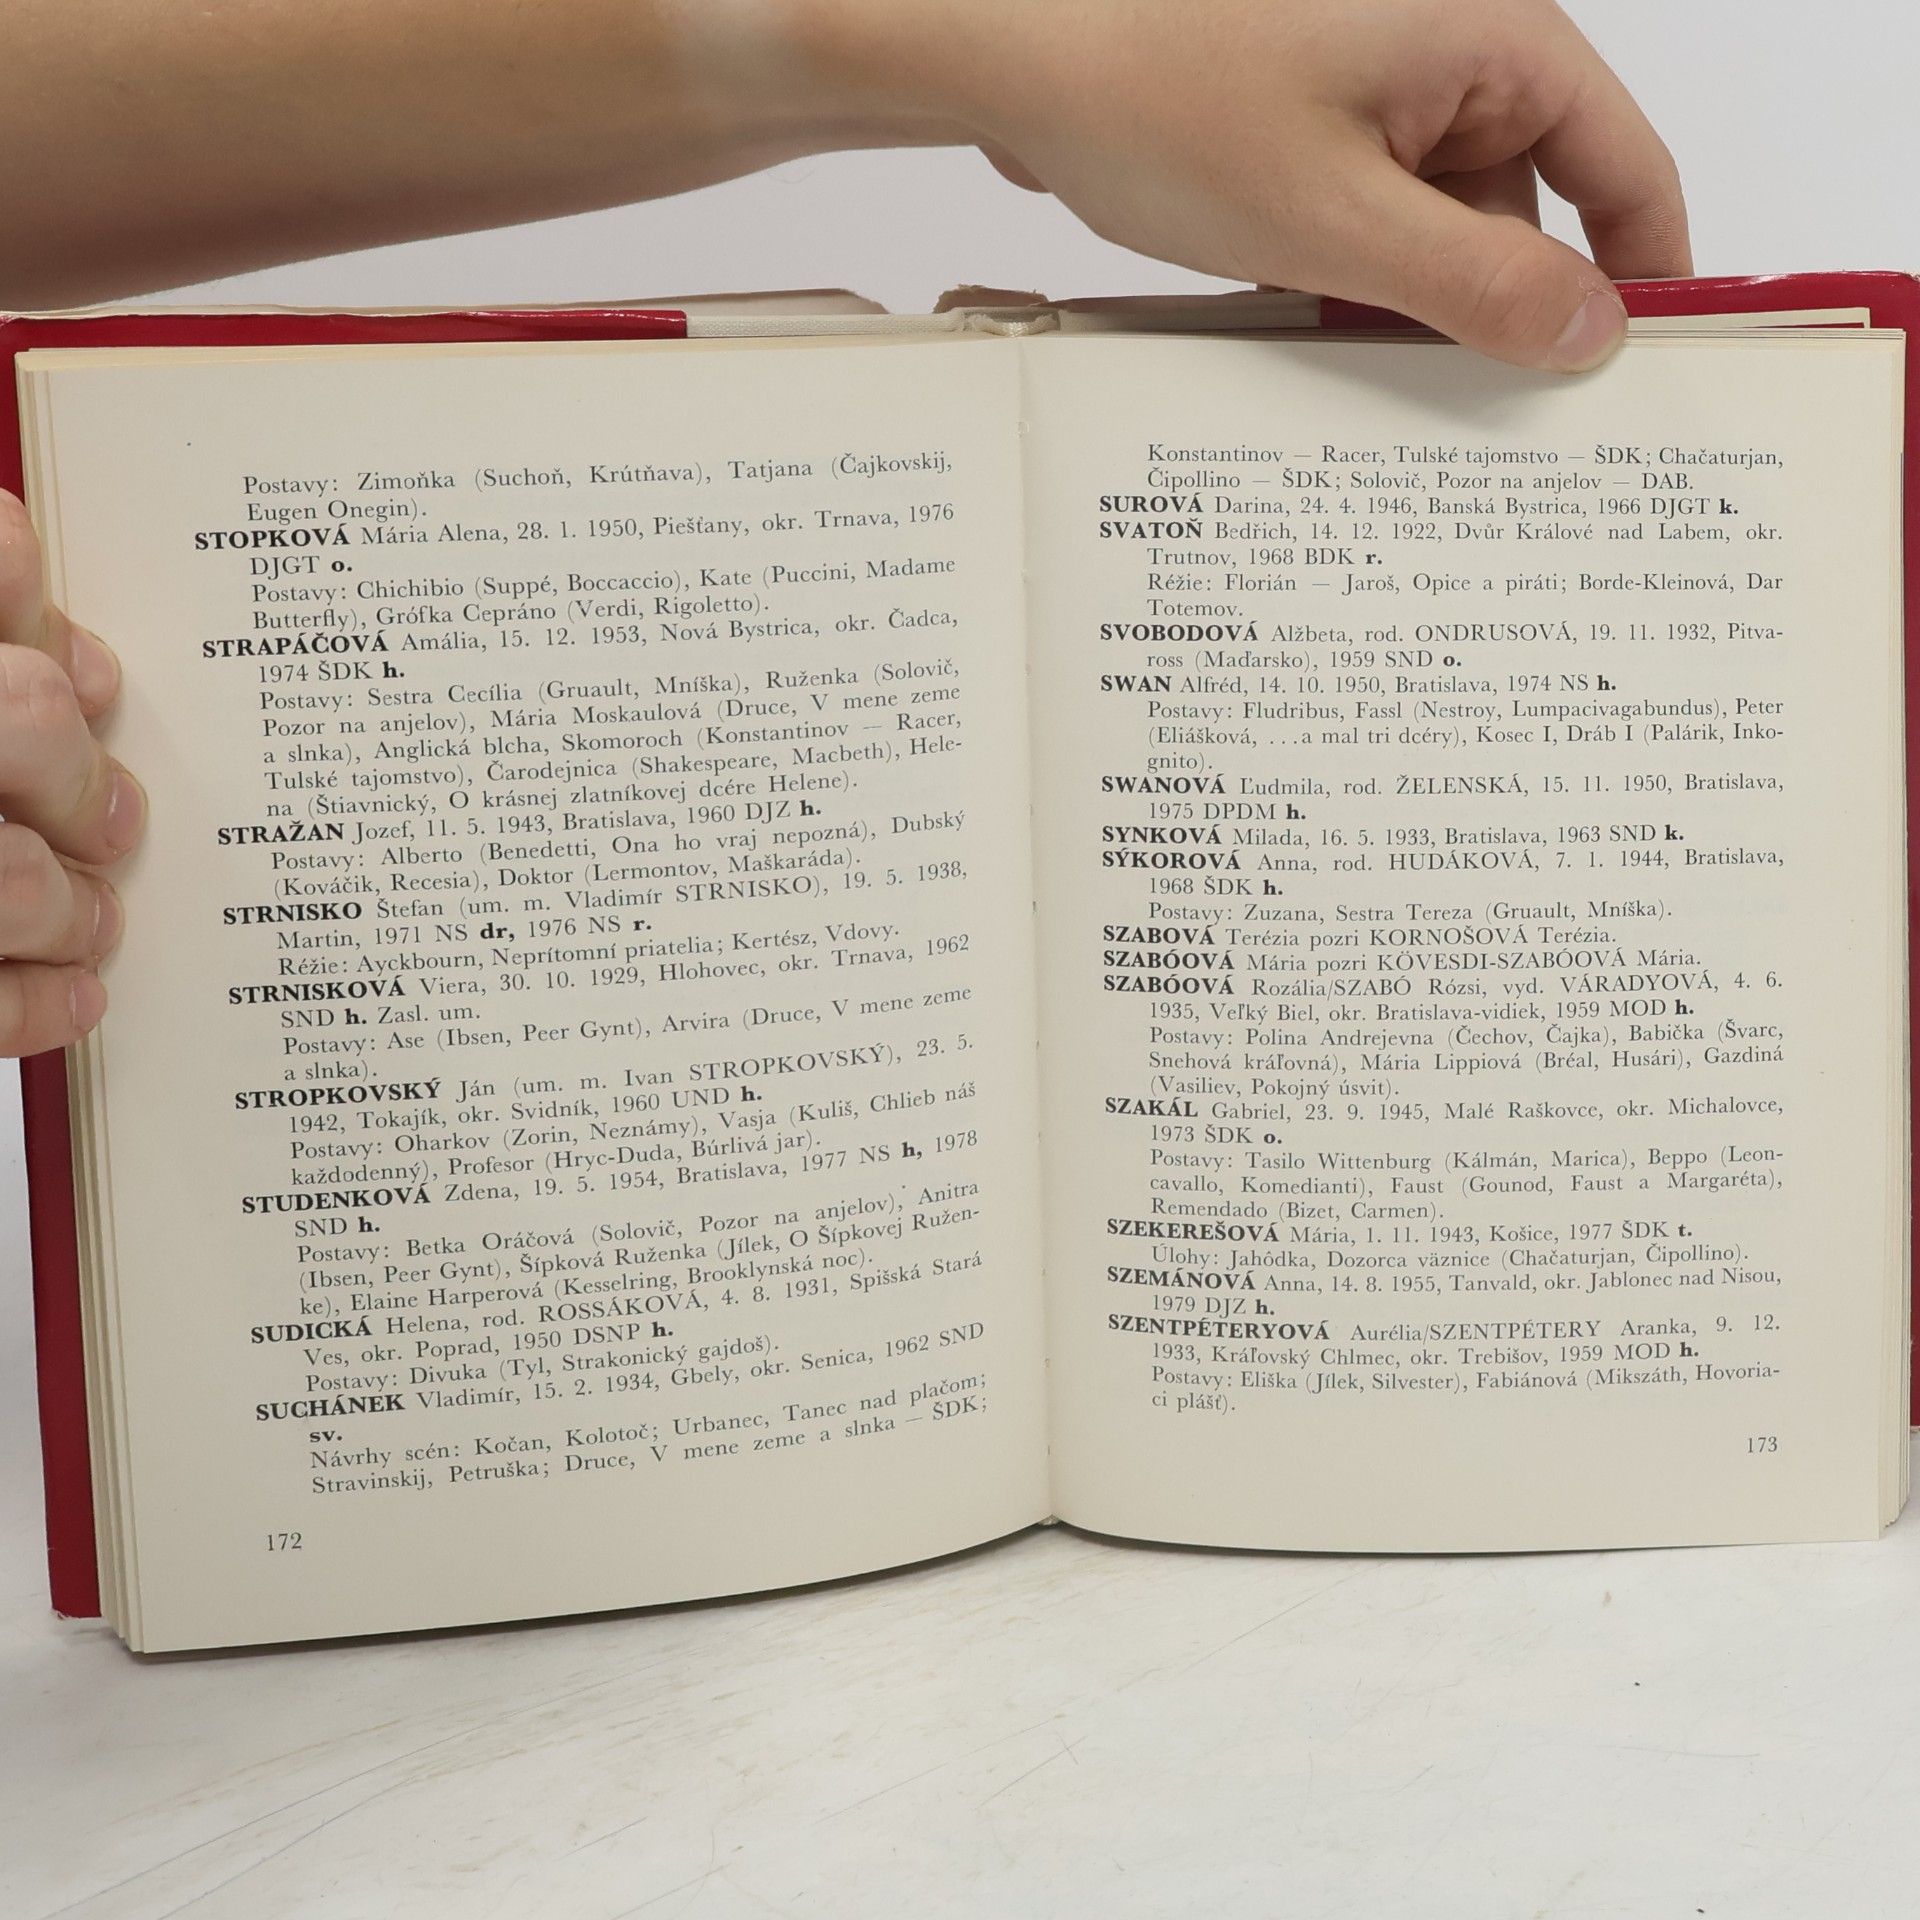 Postavy: Zimoňka (Suchoň, Krútňava), Tatjana (Čajkovskij,
Eugen Onegin).
STOPKOVÁ Mária Alena, 28. 1. 1950, Piešťany, okr. Trnava, 1976
DJGT o.
Postavy: Chichibio (Suppé, Boccaccio), Kate (Puccini, Madame
Butterfly), Grófka Cepráno (Verdi, Rigoletto).
STRAPÁČOVÁ Amália, 15. 12. 1953, Nová Bystrica, okr. Čadca,
1974 ŠDK h.
Postavy: Sestra Cecília (Gruault, Mníška), Ruženka (Solovič,
Pozor na anjelov), Mária Moskaulová (Druce, V mene zeme
a slnka), Anglická blcha, Skomoroch (Konstantinov — Racer,
Tulské tajomstvo), Čarodejnica (Shakespeare, Macbeth), Hele-
na (Štiavnický, O krásnej zlatníkovej dcére Helene).
STRAŽAN Jozef, 11. 5. 1943, Bratislava, 1960 DJZ h.
Postavy: Alberto (Benedetti, Ona ho vraj nepozná), Dubský
(Kováčik, Recesia), Doktor (Lermontov, Maškaráda).
STRNISKO Štefan (um. m. Vladimír STRNISKO), 19. 5. 1938,
Martin, 1971 NS dr, 1976 NS r.
Réžie: Ayckbourn, Neprítomní priatelia; Kertész, Vdovy.
STRNISKOVÁ Viera, 30. 10. 1929, Hlohovec, okr. Trnava, 1962
SND h. Zasl. um.
Postavy: Ase (Ibsen, Peer Gynt), Arvira (Druce, V mene zeme
a slnka).
STROPKOVSKÝ Ján (um. m. Ivan STROPKOVSKÝ), 23. 5.
1942, Tokajík, okr. Svidník, 1960 UND h.
Postavy: Oharkov (Zorin, Neznámy), Vasja (Kuliš, Chlieb náš
každodenný), Profesor (Hryc-Duda, Búrlivá jar).
STUDENKOVÁ Zdena, 19. 5. 1954, Bratislava, 1977 NS h, 1978
SND h.
Postavy: Betka Oráčová (Solovič, Pozor na anjelov), Anitra
(Ibsen, Peer Gynt), Šípková Ruženka (Jílek, O Šípkovej Ružen-
ke), Elaine Harperová (Kesselring, Brooklynská noc).
SUDICKÁ Helena, rod. ROSSÁKOVÁ, 4. 8. 1931, Spišská Stará
Ves, okr. Poprad, 1950 DSNP h.
Postavy: Divuka (Tyl, Strakonický gajdoš).
SUCHÁNEK Vladimír, 15. 2. 1934, Gbely, okr. Senica, 1962 SND
sv.
Návrhy scén: Kočan, Kolotoč; Urbanec, Tanec nad plačom;
Stravinskij, Petruška; Druce, V mene zeme a slnka — ŠDK;
172
Konstantinov — Racer, Tulské tajomstvo — ŠDK; Chačaturjan,
Čipollino — ŠDK; Solovič, Pozor na anjelov — DAB.
SUROVÁ Darina, 24. 4. 1946, Banská Bystrica, 1966 DJGT k.
SVATOŇ Bedřich, 14. 12. 1922, Dvůr Králové nad Labem, okr.
Trutnov, 1968 BDK r.
Réžie: Florián — Jaroš, Opice a piráti; Borde-Kleinová, Dar
Totemov.
SVOBODOVÁ Alžbeta, rod. ONDRUSOVÁ, 19. 11. 1932, Pitva-
ross (Maďarsko), 1959 SND o.
SWAN Alfréd, 14. 10. 1950, Bratislava, 1974 NS h.
Postavy: Fludribus, Fassl (Nestroy, Lumpacivagabundus), Peter
(Eliášková, ...a mal tri dcéry), Kosec I, Dráb I (Palárik, Inko-
gnito).
SWANOVÁ Ľudmila, rod. ŽELENSKÁ, 15. 11. 1950, Bratislava,
1975 DPDM h.
SYNKOVÁ Milada, 16. 5. 1933, Bratislava, 1963 SND k.
SÝKOROVÁ Anna, rod. HUDÁKOVÁ, 7. 1. 1944, Bratislava,
1968 ŠDK h.
Postavy: Zuzana, Sestra Tereza (Gruault, Mníška).
SZABOVÁ Terézia pozri KORNOŠOVÁ Terézia.
SZABÓOVÁ Mária pozri KÖVESDI-SZABÓOVÁ Mária.
SZABÓOVÁ Rozália/SZABÓ Rózsi, vyd. VÁRADYOVÁ, 4. 6.
1935, Veľký Biel, okr. Bratislava-vidiek, 1959 MOD h.
Postavy: Polina Andrejevna (Čechov, Čajka), Babička (Švarc,
Snehová kráľovná), Mária Lippiová (Bréal, Husári), Gazdiná
(Vasiliev, Pokojný úsvit).
SZAKÁL Gabriel, 23. 9. 1945, Malé Raškovce, okr. Michalovce,
1973 ŠDK o.
Postavy: Tasilo Wittenburg (Kálmán, Marica), Beppo (Leon-
cavallo, Komedianti), Faust (Gounod, Faust a Margaréta),
Remendado (Bizet, Carmen).
SZEKEREŠOVÁ Mária, 1. 11. 1943, Košice, 1977 ŠDK t.
Úlohy: Jahôdka, Dozorca väznice (Chačaturjan, Čipollino).
SZEMÁNOVÁ Anna, 14. 8. 1955, Tanvald, okr. Jablonec nad Nisou,
1979 DJZ h.
SZENTPÉTERYOVÁ Aurélia/SZENTPÉTERY Aranka, 9. 12.
1933, Kráľovský Chlmec, okr. Trebišov, 1959 MOD h.
Postavy: Eliška (Jílek, Silvester), Fabiánová (Mikszáth, Hovoria-
ci plášť).
173